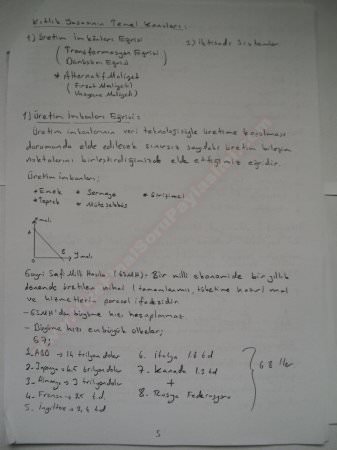 Kıtlık Yasasının Temel Kanunları:
1) Üretim İmkânları Eğrisi 2) İktisadi Sistemler
( Transformasyon Eğrisi
Dönüşüm Eğrisi )
* Alternatif Maliyet
( Fırsat Maliyeti
Vazgeçme Maliyeti )
1) Üretim İmkanları Eğrisi:
Üretim imkanlarının veri teknolojisiyle üretime koşulması
durumunda elde edilecek sınırsız sayıdaki üretim bileşim
noktalarını birleştirdiğimizde elde ettiğimiz eğridir.
Üretim imkanları;
* Emek * Sermaye * Girişimci
* Toprak * Müteşebbüs
X malı
A
B Y malı
Gayri Safi Milli Hasıla (GSMH): Bir milli ekonomide bir yıllık
dönemde üretilen nihai (tamamlanmış, tüketime hazır) mal
ve hizmetlerin parasal ifadesidir.
- GSMH'da büyüme hızı hesaplanmaz.
- Büyüme hızı en büyük ülkeler;
G7;
1. ABD → 14 trilyon dolar 6. İtalya 1.8 t.d
2. Japonya → 6.5 trilyon dolar 7. Kanada 1.2 t.d
3. Almanya → 3 trilyon dolar +
4. Fransa → 2.5 t.d. 8. Rusya Federasyonu
5. İngiltere → 2,4 t.d
G8 ler
5
SoruPaylas